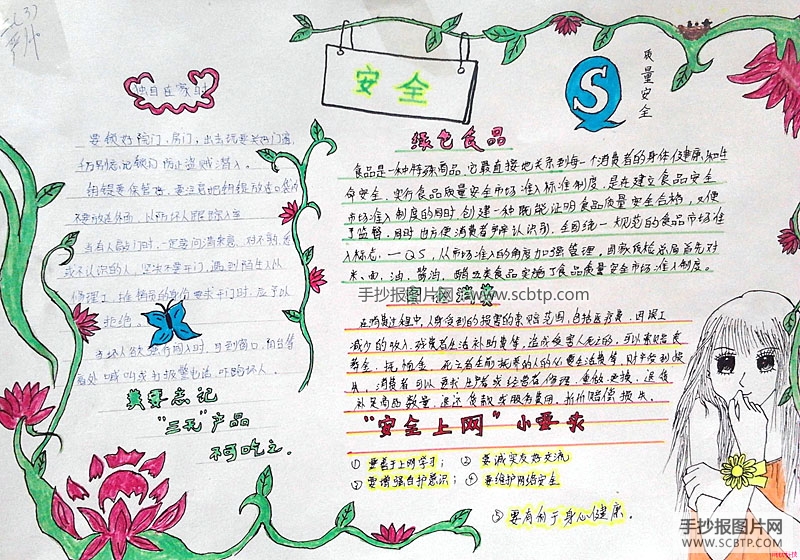 安全
S
质量安全
独自在家时
要锁好院门、房门，出去玩要关好门窗，
千万别忘记锁门，防止盗贼潜入。
钥匙要保管好，要注意把钥匙放进口袋内
不要放在外面，以防坏人跟踪入室
当有人敲门时，一定要问清来意，对不熟悉
或不认识的人，坚决不要开门，遇到陌生人以
修理工、推销员的身份要求开门时，应予以
拒绝。
当坏人欲强行闯入时，可到窗口、阳台等
高处喊叫或打报警电话，吓跑坏人。
莫要忘记
"三无"产品
不可吃之。
绿色食品
食品是一种特殊商品，它最直接地关系到每一个消费者的身体健康和生
命安全，实行食品质量安全市场准入标准制度，是在建立食品安全
市场准入制度的同时，创建一种既能证明食品质量安全合格，又便
于监督，同时也方便消费者辨认识别，全国统一规范的食品市场准
入标志，一QS，从市场准入的角度加强管理，国家质检总局首先对
米、面、油、酱油、醋五类食品实施了食品质量安全市场准入制度。
手抄报图片网 www.scbtp.com
消费
在消费过程中，人身受到的损害的索赔范围，包括医疗费、因误工
减少的收入、残废者生活补助费等，造成受害人死亡的，可以索赔丧
葬金、抚恤金、死亡者生前抚养的人的必要生活费等，财产受到损
失，消费者可以要求生产者或经营者修理、重做、更换、退货、
补足商品数量、退还货款或服务费用、折价赔偿损失。
"安全上网"小要求
① 要善于上网学习；② 要诚实友好交流
③ 要增强自护意识；④ 要维护网络安全
⑤ 要有利于身心健康。
手抄报图片网
WWW.SCBTP.COM